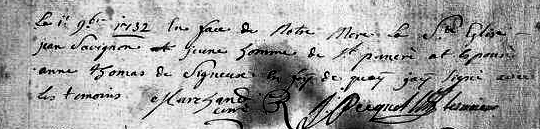 Le 1r 9bre 1732 En face de Notre Mere la Ste Eglise
jean Savignon et jeune homme de St at Epousé
anne thomas de Signeux en foy de quoy jay Signé avec
les temoins Marchand